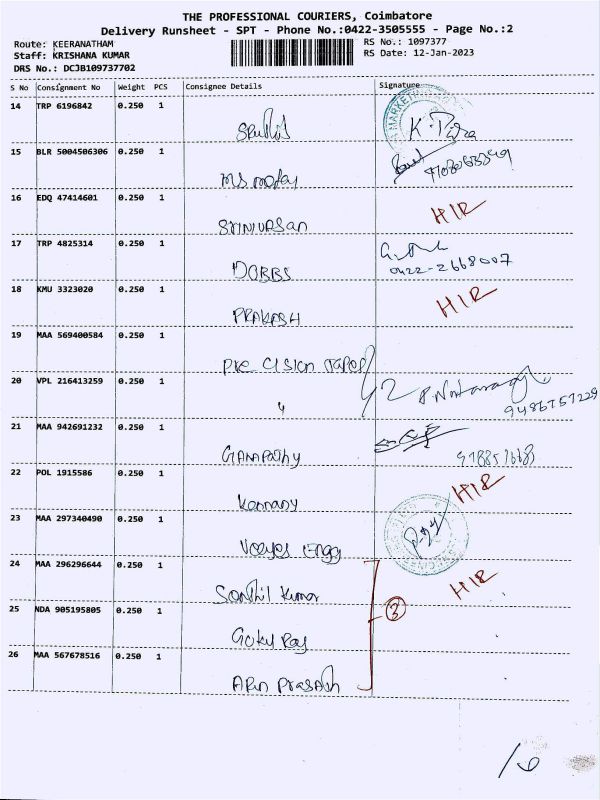 THE PROFESSIONAL COURIERS, Coimbatore
Delivery Runsheet - SPT - Phone No.:0422-3505555 - Page No.:2
Route: KEERANATHAM
Staff: KRISHANA KUMAR
DRS No.: DCJB109737702
RS No.: 1097377
RS Date: 12-Jan-2023
S No Consignment No Weight PCS Consignee Details Signature
14 TRP 6196842 0.250 1
15 BLR 5004506306 0.250 1
16 EDQ 47414601 0.250 1
HIR
SRINIVASan
17 TRP 4825314 0.250 1
DOBBS
0422-2668007
18 KMU 3323020 0.250 1
HIR
PRAKASH
19 MAA 569400584 0.250 1
Precision Tapes
20 VPL 216413259 0.250 1
"
9486757229
21 MAA 942691232 0.250 1
GANAPathy
22 POL 1915586 0.250 1
HIR
23 MAA 297340490 0.250 1
Veeyes Engg
24 MAA 296296644 0.250 1
HIR
Senthil Kumar
25 NDA 905195805 0.250 1
3
Gokul Raj
26 MAA 567678516 0.250 1